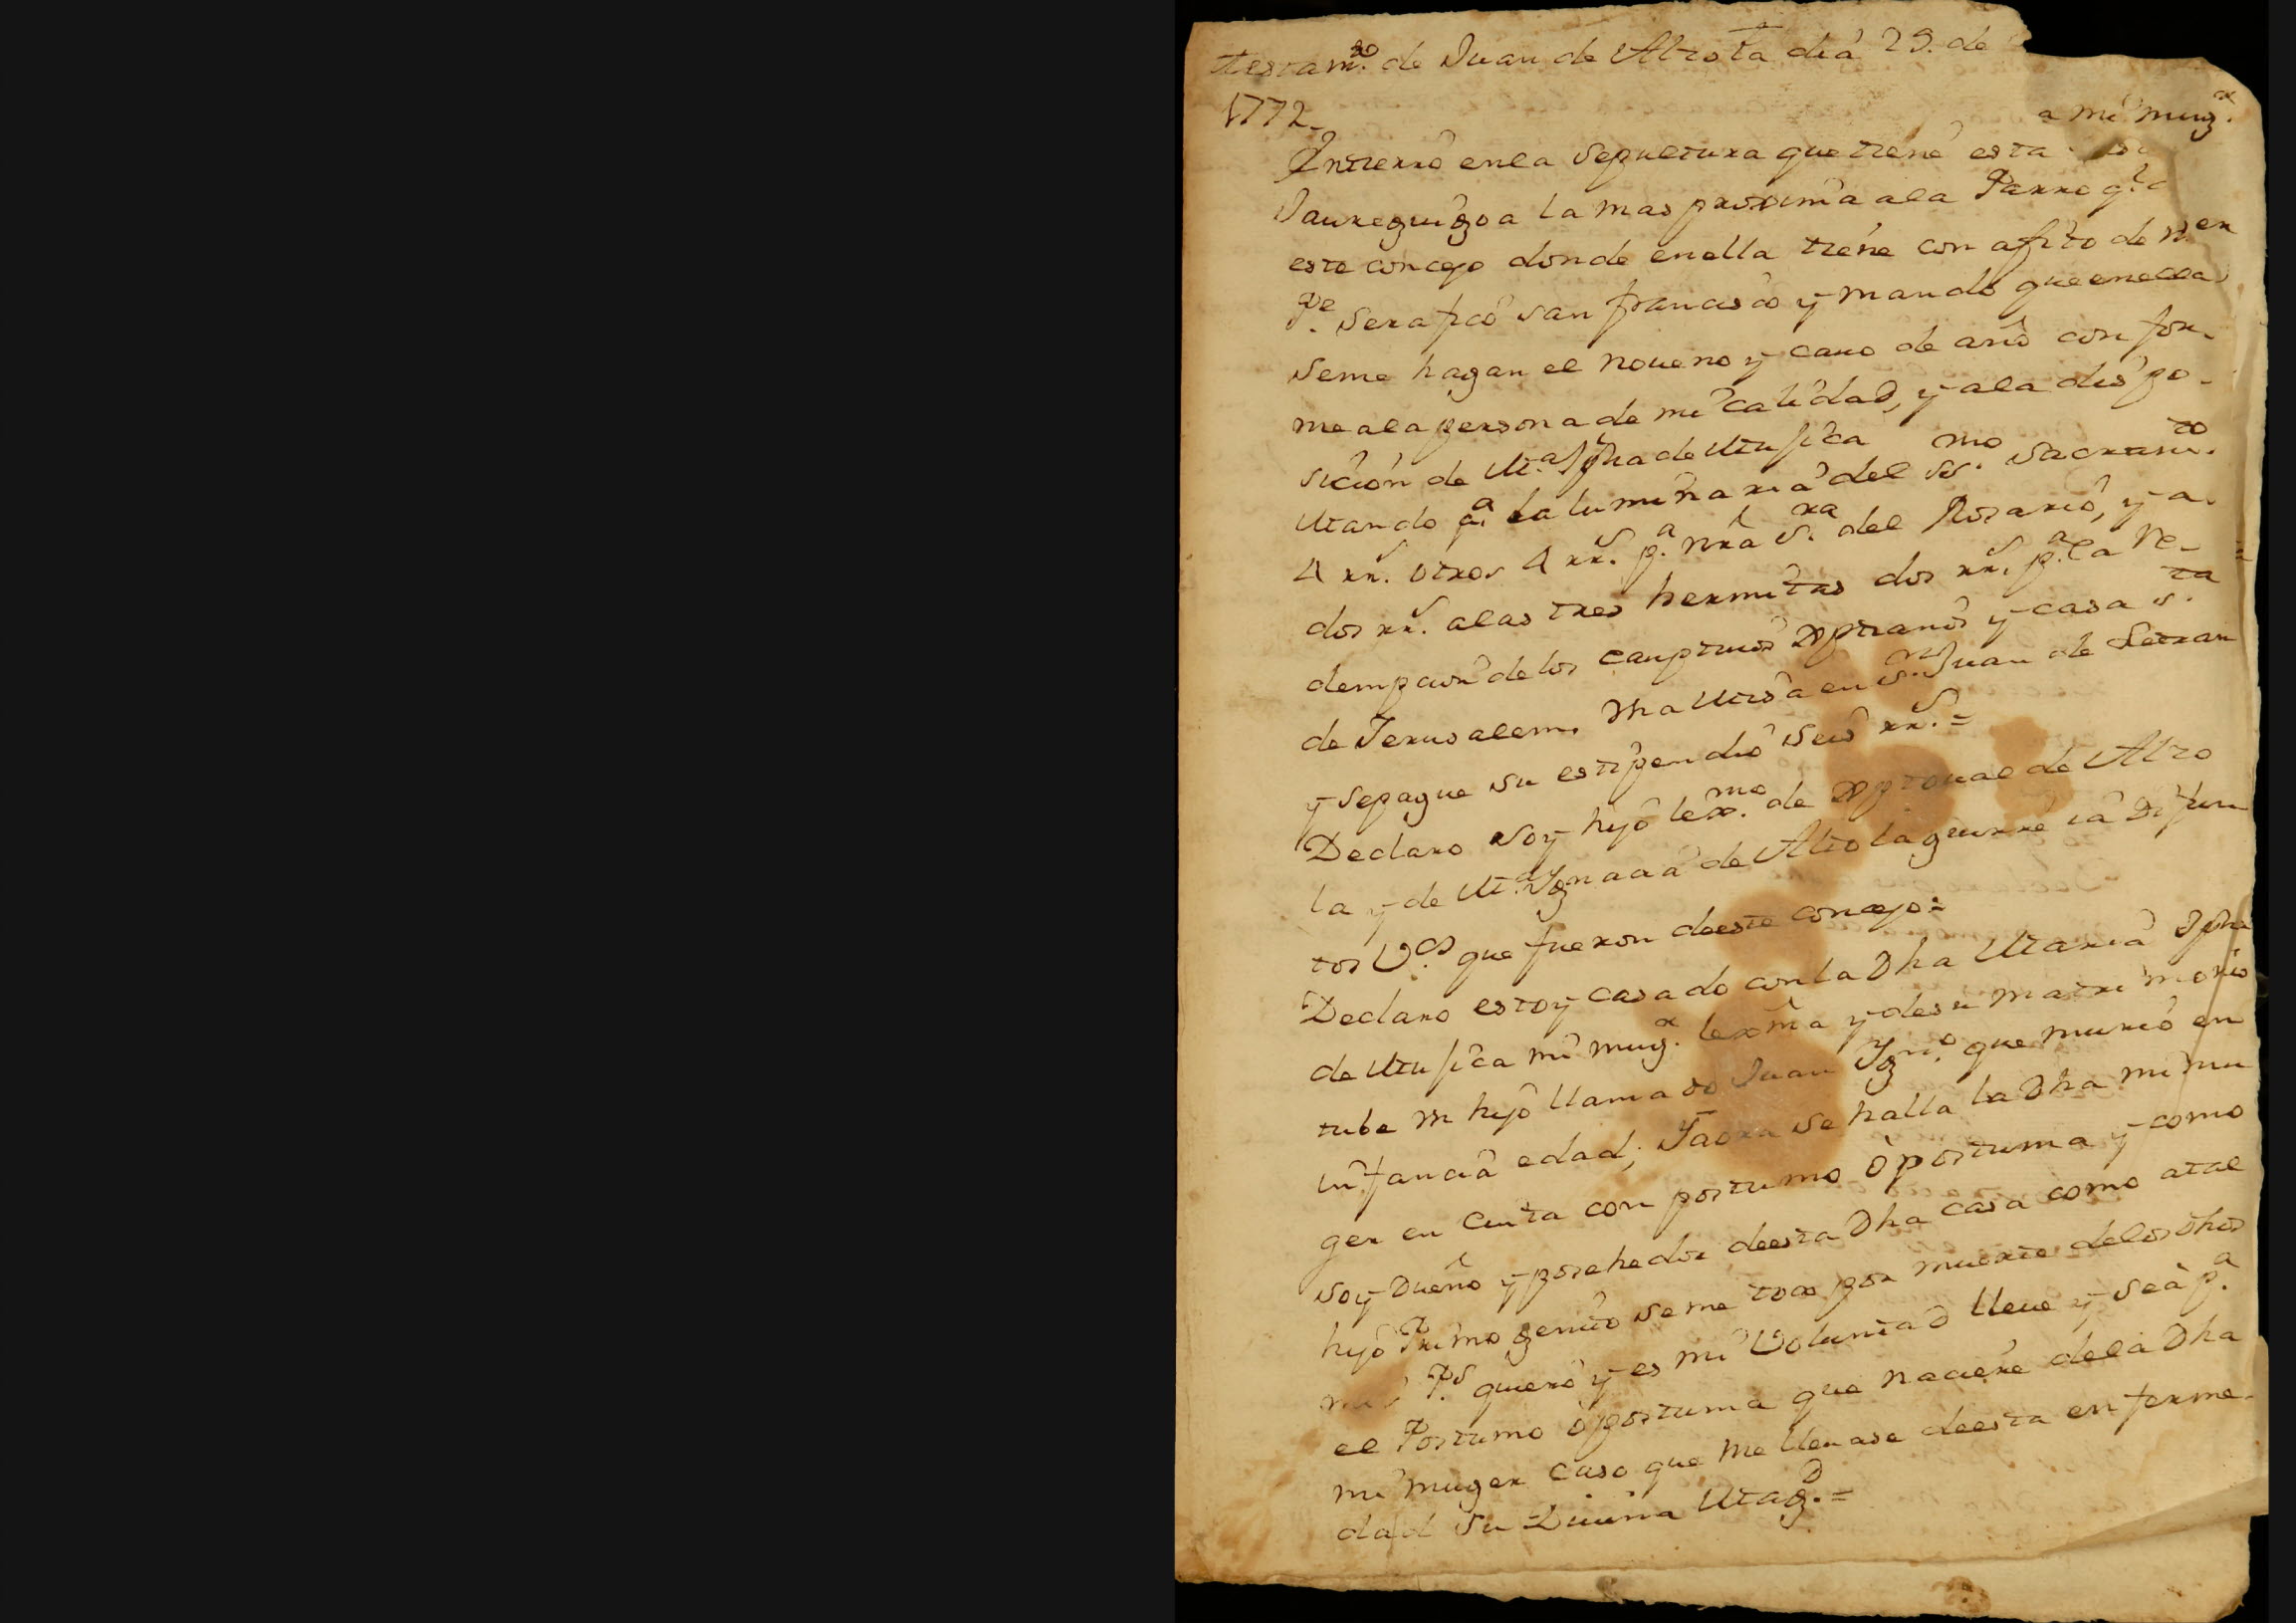 testamto. de Juan de Altola dia 29. de
1772_
a mi mugr.
Yntierro en la sepultura que tiene esta
Jaureguigoa la mas proxima a la Parroql.
este concejo donde en ella tiene con afito de nr
Pe. Serafico san francisco y mando que en ella
se me hagan el noueno y cauo de año confor-
me a la persona de mi calidad, y a la dispo-
sicion de Ma. Jpha de Mufica
Mando pa. la luminaria del SSmo. Sacramto.
4 rrs. otros 4 rrs. pa. nra Sra. del Rosario, y a
dos rrs. a las tres hermitas dos rrs. pa. la Re-
dempcion de los cauptiuos xptianos y casa sta.
de Jerusalem. Vna Misa en Sn. Juan de Letran
y se pague su estipendio seis rrs. =
Declaro soy hijo lexmo. de xptoual de Alto
la y de Ma. Ygnacia de Altolaguirre ia difun
tos Vos. que fueron de este concejo =
Declaro estoy casado con la Dha Maria Jpha
de Mufica mi mugr. lexma y de su matrimonio
tube vn hijo llamado Juan Ygno. que murio en
infancia edad; Y aora se halla la Dha mi mu
ger en cinta con postumo o postuma y como
soy Dueño y posehedor de esta Dha casa como a tal
hijo Primogenito se me toco por muerte de los Dhos
mis Ps. quiero y es mi Voluntad lleue y sea pa.
el Postumo o postuma que naciere de la Dha
mi muger caso que me lleuase de esta enferme-
dad su Diuina Magd. =